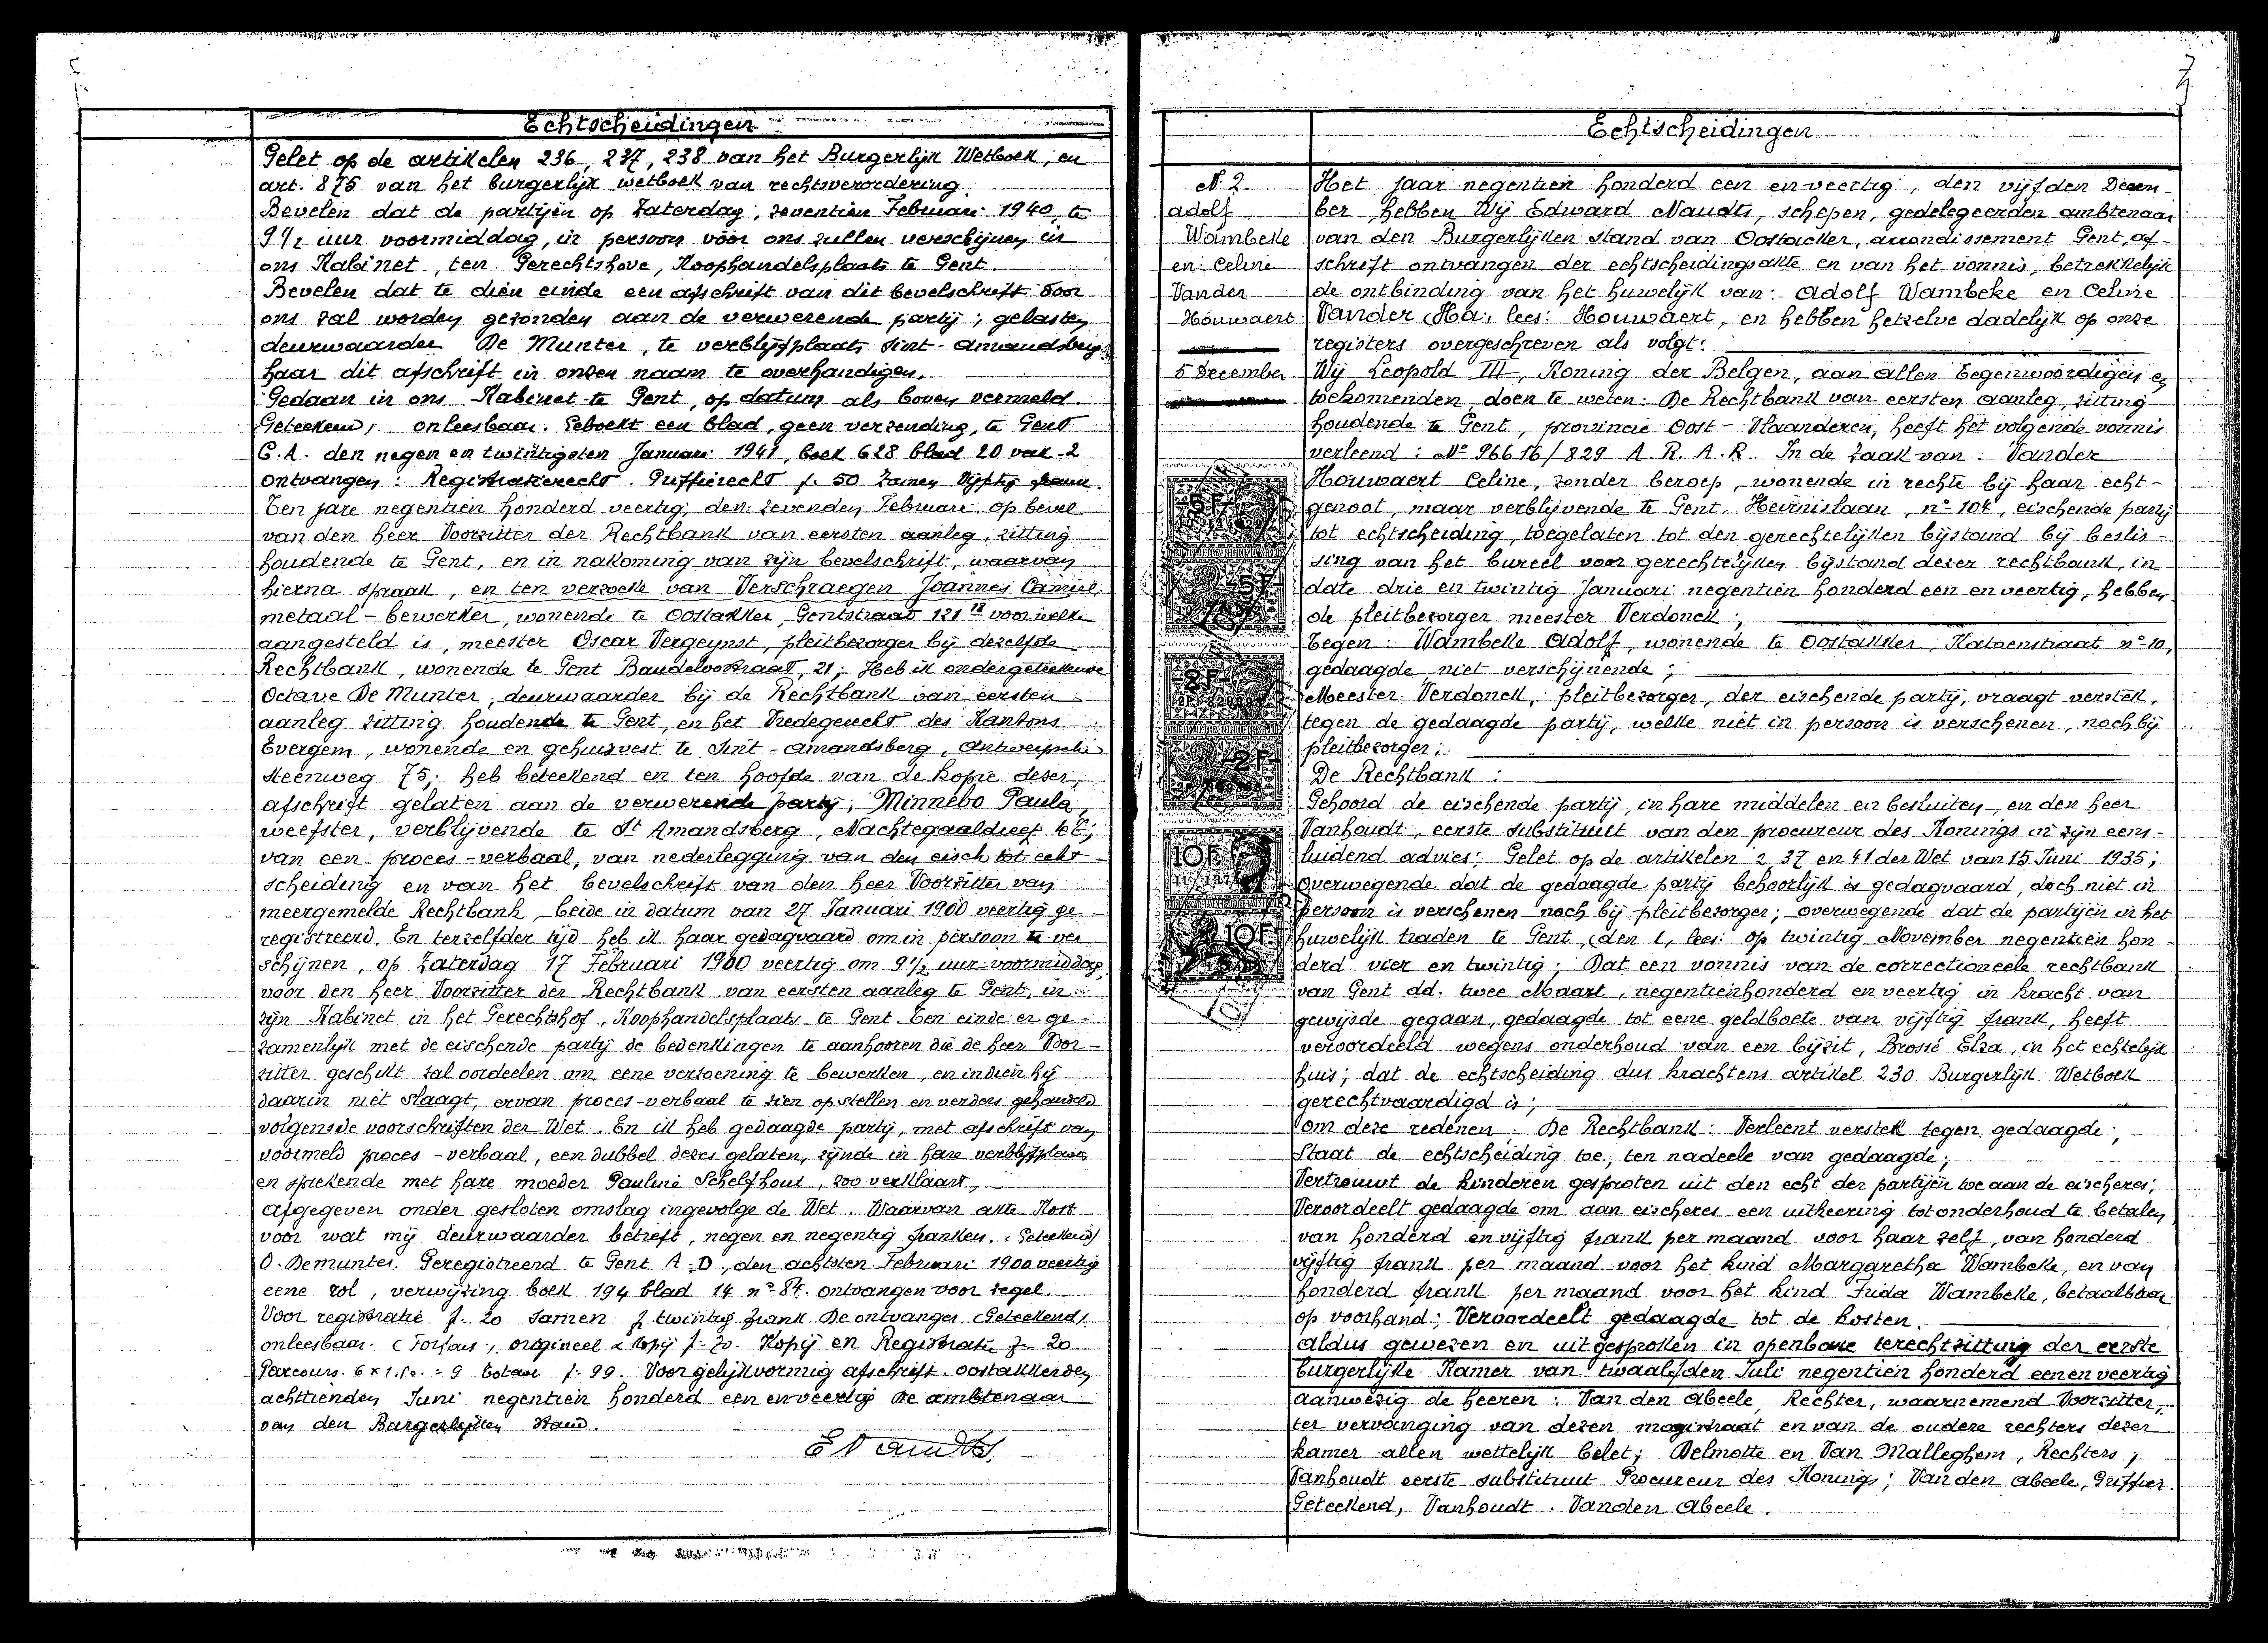 Echtscheidingen
Gelet op de artikelen 236, 237, 238 van het Burgerlijk Wetboek, en
art. 875 van het burgerlijk wetboek van rechtsverordering.
Bevelen dat de partijen op Zaterdag, zeventien Februari 1940, te
9 1/2 uur voormiddag, in persoon vóór ons zullen verschijnen in
ons Kabinet, ten Gerechtshove, Koophandelsplaats te Gent.
Bevelen dat te dien einde een afschrift van dit bevelschrift door
ons zal worden gezonden aan de verwerende partij; gelasten
deurwaarder De Munter, te verblijfplaats Sint-Amandsberg
haar dit afschrift in onzen naam te overhandigen.
Gedaan in ons Kabinet te Gent, op datum als boven vermeld
Geteekend, onleesbaar. Geboekt een blad, geen verzending, te Gent
C.A. den negen en twintigsten Januari 1941, boek 628 blad 20 vak 2
ontvangen: Registratierecht. Griffierecht f. 50 Zamen Vijftig frank.
Ten jare negentien honderd veertig, den zevenden Februari op bevel
van den heer Voorzitter der Rechtbank van eersten aanleg, zitting
houdende te Gent, en in nakoming van zijn bevelschrift, waarvan
hierna spraak, en ten verzoeke van Verschraegen Joannes Camiel
metaal-bewerker, wonende te Oostakker, Gentstraat 121 18 voor welke
aangesteld is, meester Oscar Vergeynst, pleitbezorger bij dezelfde
Rechtbank, wonende te Gent Baudeloostraat, 21; Heb ik ondergeteekende
Octave De Munter, deurwaarder bij de Rechtbank van eersten
aanleg zitting houdende te Gent, en het Vredegerecht des Kantons
Evergem, wonende en gehuisvest te Sint-Amandsberg, Antwerpsche
steenweg 75; heb beteekend en ten hoofde van de kopie dezer,
afschrift gelaten aan de verwerende partij, Minnebo Paula,
weefster, verblijvende te St Amandsberg, Nachtegaaldreef
van een proces-verbaal, van nederlegging van den eisch tot echt-
scheiding en van het bevelschrift van den heer Voorzitter van
meergemelde Rechtbank, beide in datum van 27 Januari 1900 veertig ge-
registreerd. En terzelfder tijd heb ik haar gedagvaard om in persoon te ver
schijnen, op Zaterdag 17 Februari 1900 veertig om 9 1/2 uur voormiddag,
voor den heer Voorzitter der Rechtbank van eersten aanleg te Gent, in
zijn Kabinet in het Gerechtshof, Koophandelsplaats te Gent. Ten einde er ge-
zamenlijk met de eischende partij de bedenkingen te aanhooren die de heer Voor-
zitter geschikt zal oordeelen om eene verzoening te bewerken, en indien hij
daarin niet slaagt, ervan proces-verbaal te zien opstellen en verders gehandeld
volgens de voorschriften der Wet. En ik heb gedaagde partij, met afschrift van
voormeld proces-verbaal, een dubbel dezes gelaten, zijnde in hare verblijfplaats
en sprekende met hare moeder Pauline Schelfhout, zoo verklaard,
Afgegeven onder gesloten omslag ingevolge de Wet. Waarvan akte. Kost
voor wat mij deurwaarder betreft, negen en negentig franken. (Geteekend)
O. Demunter. Geregistreerd te Gent A.D, den achtsten Februari 1900 veertig
eene rol, verwijzing boek 194 blad 14 n° 84. ontvangen voor zegel.
Voor registratie f. 20 samen f twintig frank. De ontvanger (Geteekend)
onleesbaar. (Forfais, origineel & kopij f. 70. Kopij en Registratie f. 20
Parcours. 6 x 1.50 = 9 totaal f. 99. Voor gelijkvormig afschrift. Oostakker den
achttienden Juni negentien honderd een en veertig De ambtenaar
van den Burgerlijken Stand.
E Naudts
7
Echtscheidingen
N. 2.
Adolf
Wambeke
en Celine
Vander
Houwaert
5 December
Het jaar negentien honderd een en veertig, den vijfden Decem-
ber, hebben Wij Edward Naudts, schepen, gedelegeerden ambtenaar
van den Burgerlijken stand van Oostacker, arrondissement Gent, af-
schrift ontvangen der echtscheidingsakte en van het vonnis, betrekkelijk
de ontbinding van het huwelijk van: Adolf Wambeke en Celine
Vander (Ha, lees: Houwaert, en hebben hetzelve dadelijk op onze
registers overgeschreven als volgt:
Wij Leopold III, Koning der Belgen, aan allen tegenwoordigen en
toekomenden, doen te weten: De Rechtbank van eersten aanleg, zitting
houdende te Gent, provincie Oost-Vlaanderen, heeft het volgende vonnis
verleend: N° 96616/829 A.R.A.R. In de zaak van: Vander
Houwaert Celine, zonder beroep, wonende in rechte bij haar echt-
genoot, maar verblijvende te Gent, Heirnislaan, n° 104, eischende partij
tot echtscheiding, toegelaten tot den gerechtelijken bijstand bij beslis-
sing van het bureel voor gerechtelijken bijstand dezer rechtbank, in
date drie en twintig Januari negentien honderd een en veertig, hebben
de pleitbezorger meester Verdonck;
Tegen: Wambeke Adolf, wonende te Oostakker, Katoenstraat n° 10,
gedaagde niet verschijnende;
Meester Verdonck, pleitbezorger, der eischende partij, vraagt verstek,
tegen de gedaagde partij, welke niet in persoon is verschenen, noch bij
pleitbezorger;
De Rechtbank:
Gehoord de eischende partij, in hare middelen en besluiten, en den heer
Vanhoudt, eerste substituut van den procureur des Konings in zijn eens-
luidend advies; Gelet op de artikelen 2, 37 en 41 der Wet van 15 Juni 1935;
Overwegende dat de gedaagde partij behoorlijk is gedagvaard, doch niet in
persoon is verschenen noch bij pleitbezorger; overwegende dat de partijen in het
huwelijk traden te Gent, (den l, lees: op twintig November negentien hon-
derd vier en twintig; Dat een vonnis van de correctioneele rechtbank
van Gent dd. twee Maart, negentienhonderd en veertig in kracht van
gewijsde gegaan, gedaagde tot eene geldboete van vijftig frank, heeft
veroordeeld wegens onderhoud van een bijzit, Brossé Elza, in het echtelijk
huis; dat de echtscheiding dus krachtens artikel 230 Burgerlijk Wetboek
gerechtvaardigd is;
Om deze redenen: De Rechtbank: Verleent verstek tegen gedaagde;
Staat de echtscheiding toe, ten nadeele van gedaagde;
Vertrouwt de kinderen gesproten uit den echt der partijen toe aan de eischeres;
Veroordeelt gedaagde om aan eischeres een uitkeering tot onderhoud te betalen
van honderd en vijftig frank per maand voor haar zelf, van honderd
vijftig frank per maand voor het kind Margaretha Wambeke, en van
honderd frank per maand voor het kind Frida Wambeke, betaalbaar
op voorhand; Veroordeelt gedaagde tot de kosten.
Aldus gewezen en uitgesproken in openbare terechtzitting der eerste
burgerlijke Kamer van twaalfden Juli negentien honderd een en veertig
aanwezig de heeren: Van den Abeele, Rechter, waarnemend Voorzitter,
ter vervanging van dezen magistraat en van de oudere rechters dezer
kamer allen wettelijk belet; Delmotte en Van Malleghem, Rechters;
Vanhoudt eerste substituut Procureur des Konings; Van den Abeele, Griffier.
Geteekend, Vanhoudt. Vanden Abeele.
5F
5F
2F
2F
10F
10F